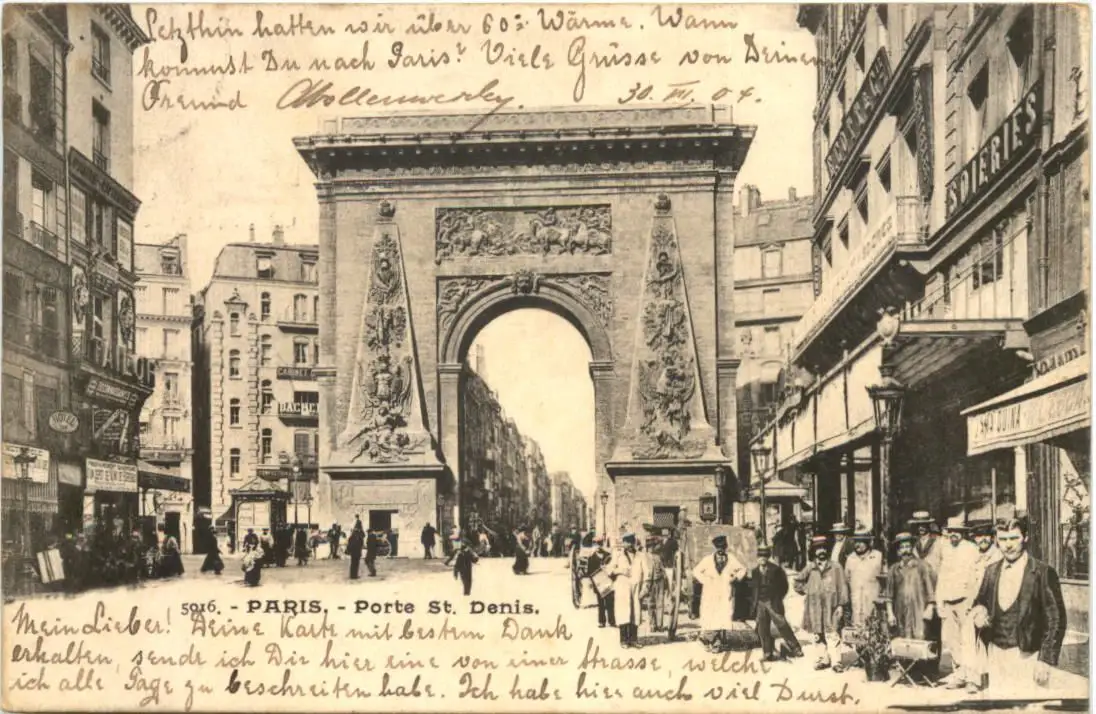 Letzthin hatten wir über 60° Wärme. Wann
kommst Du nach Paris? Viele Grüsse von Deinem
Freund
30. VII. 04.
SOIERIES
HOTEL
CABINET
5916. - PARIS. - Porte St. Denis.
Mein Lieber! Deine Karte mit bestem Dank
erhalten, sende ich Dir hier eine von einer Strasse, welche
ich alle Tage zu beschreiten habe. Ich habe hier auch viel Durst.